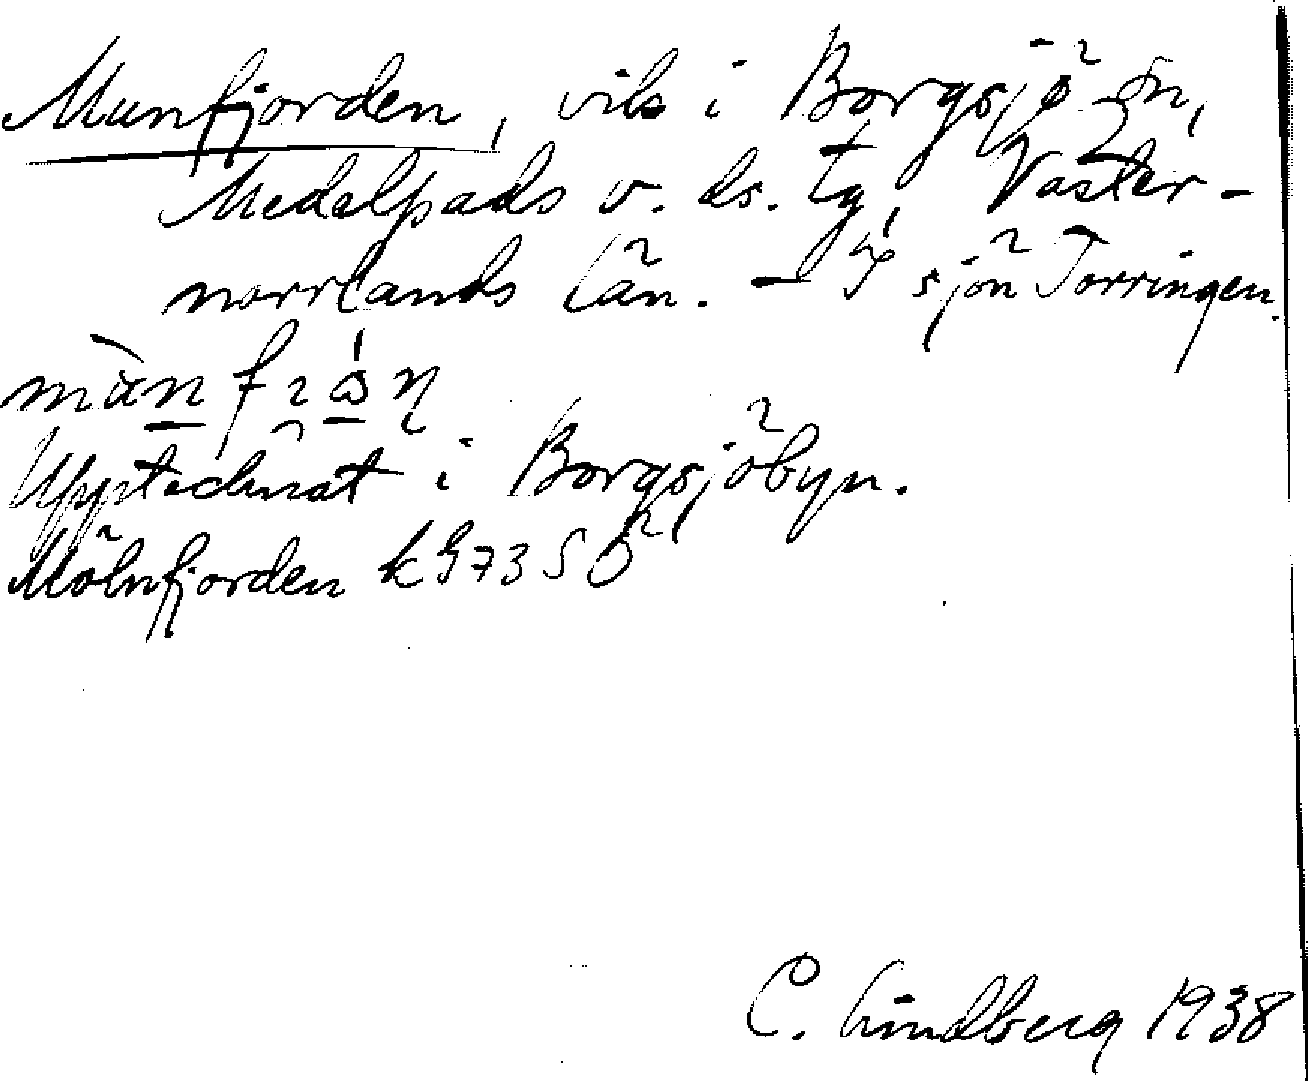 Munfjorden, vik i Borgsjö sn,
Medelpads v. ds. tg, Väster-
norrlands län. – I sjön Torringen.
Upptecknat i Borgsjöbyn.
Mölnfjorden k G 73 SÖ
C. Lindberg 1938